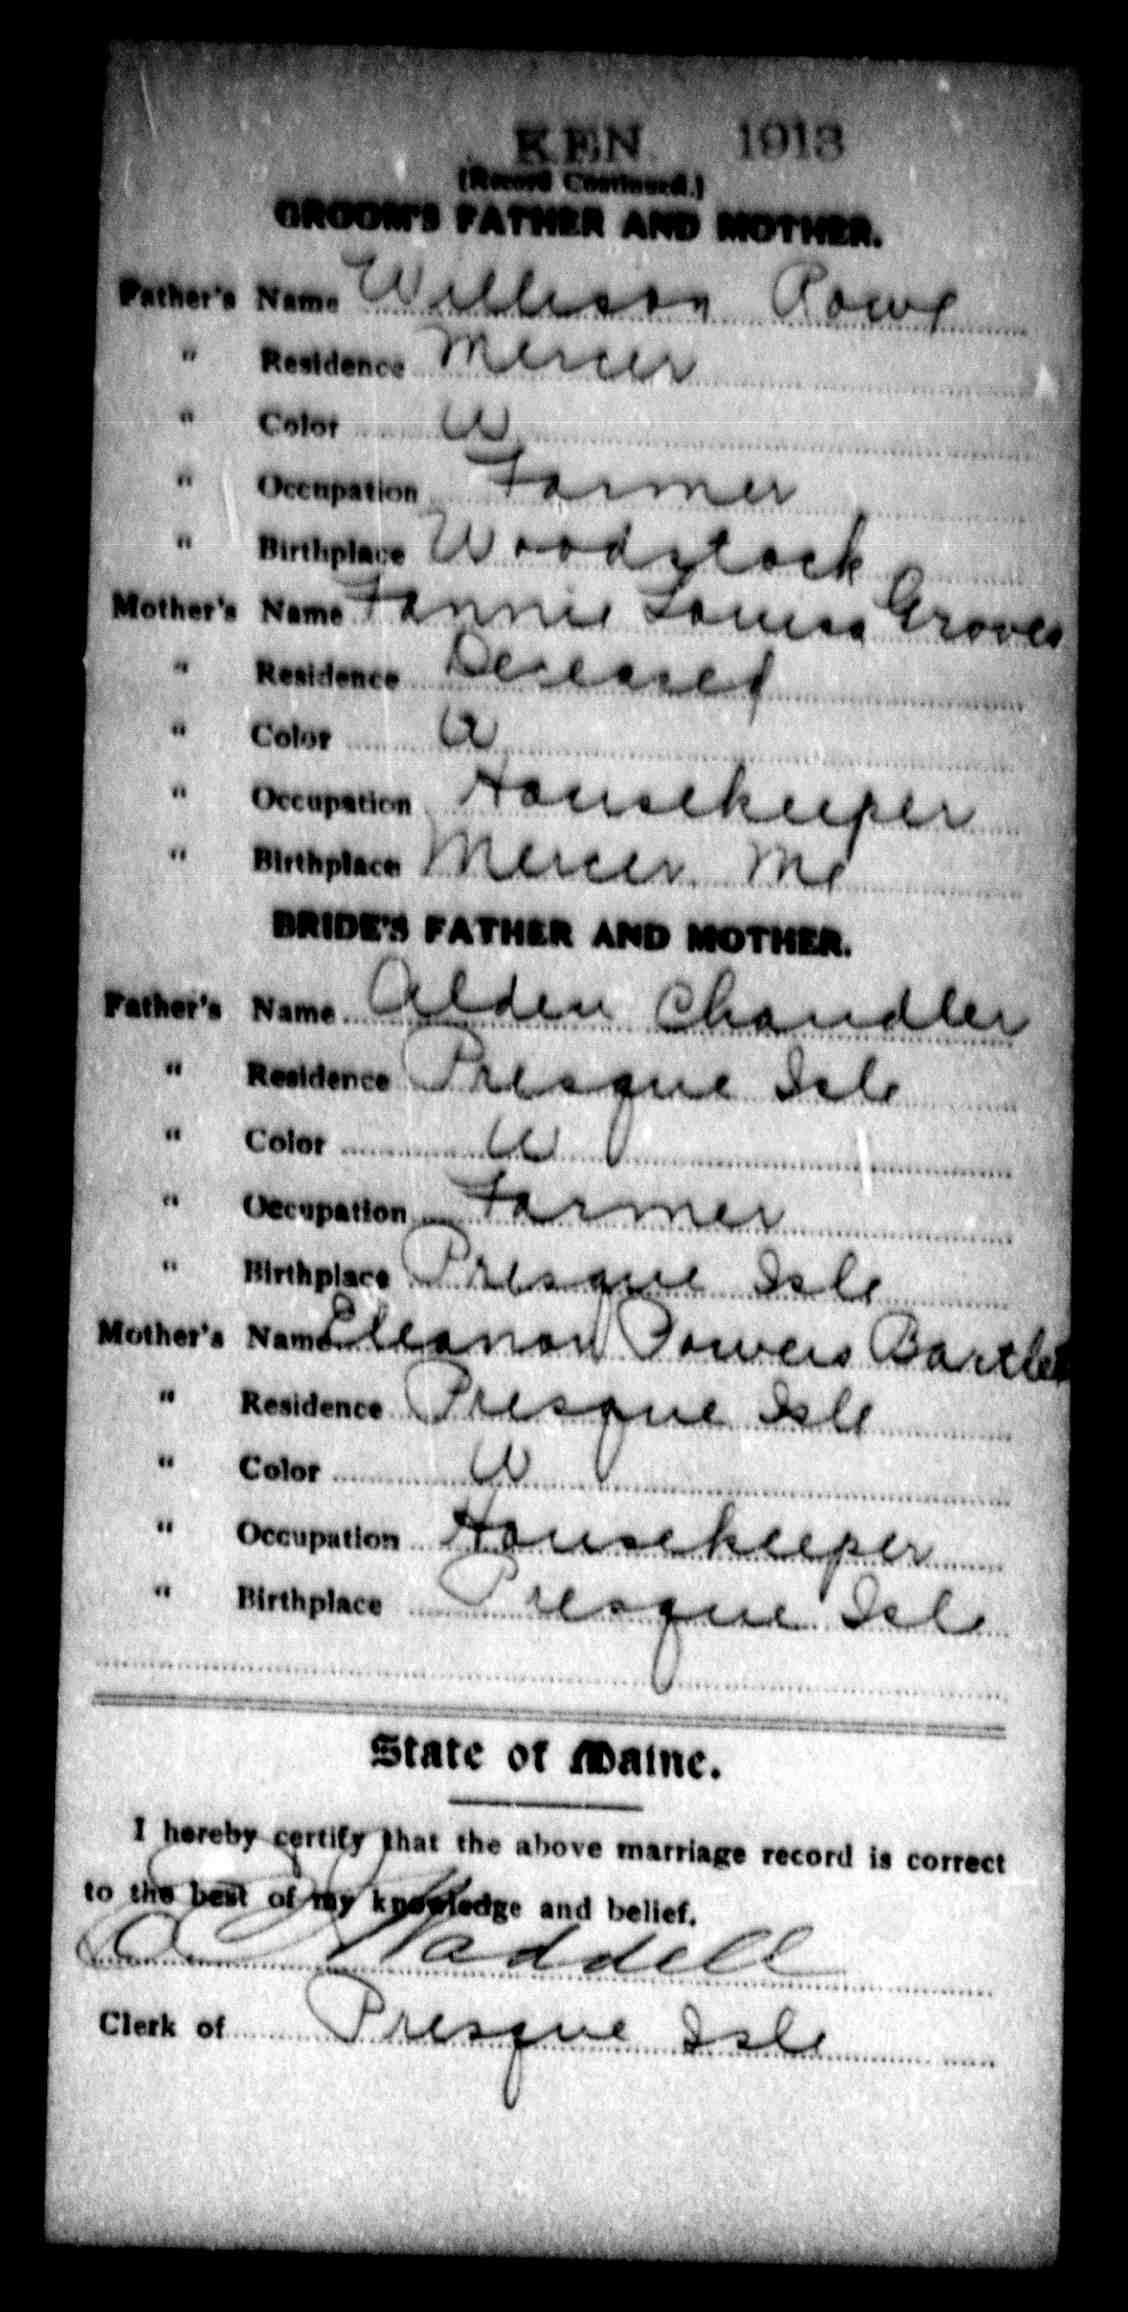 KEN 1913
(Record Continued.)
GROOM'S FATHER AND MOTHER.
Father's Name Willison Rowe
" Residence Mercer
" Color W
" Occupation Farmer
" Birthplace Woodstock
Mother's Name Fannie Louisa Groves
" Residence Deceased
" Color W
" Occupation Housekeeper
" Birthplace Mercer Me
BRIDE'S FATHER AND MOTHER.
Father's Name Alden Chandler
" Residence Presque Isle
" Color W
" Occupation Farmer
" Birthplace Presque Isle
Mother's Name Eleanor Powers Bartlett
" Residence Presque Isle
" Color W
" Occupation Housekeeper
" Birthplace Presque Isle
State of Maine.
I hereby certify that the above marriage record is correct
to the best of my knowledge and belief.
Waddell
Clerk of Presque Isle